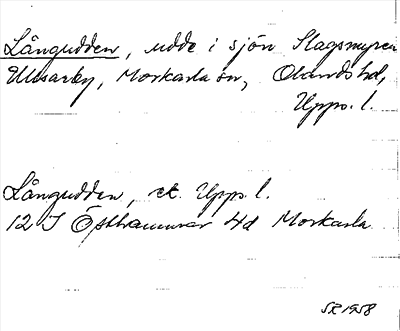 Långudden, udde i sjön Slagsmyren
Ullsarby, Morkarla sn, Olands hd,
Upps. l.
Långudden, ek. Upps. l.
12 I Östhammar 4d Morkarla
SR 1958